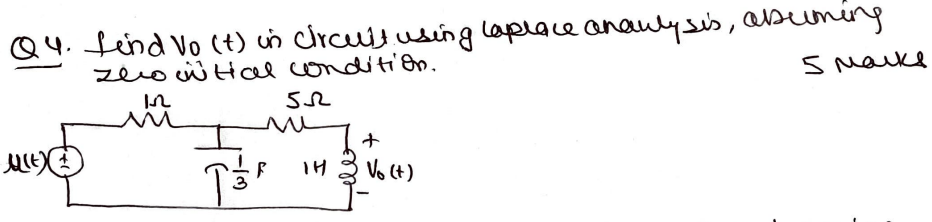 Q4. find Vo (t) in circuit using laplace analysis, assuming
zero initial condition.
5 Marks
1Ω
5Ω
+
u(t)
1/3 F
1H
Vo (t)
-